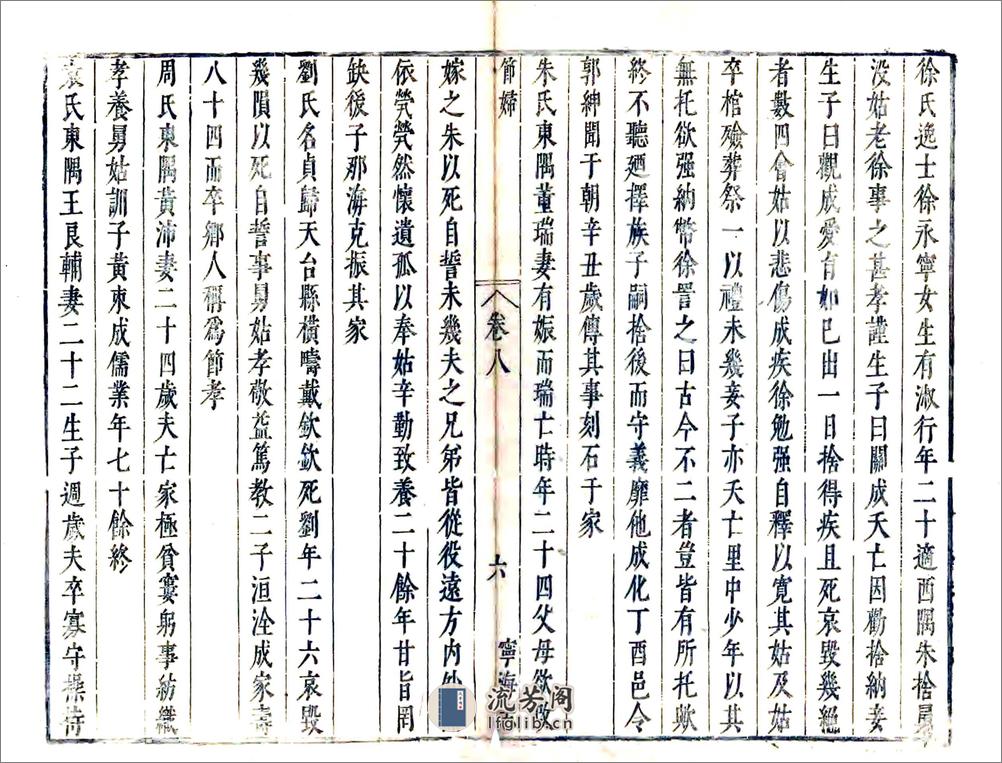 徐氏逸士徐永寧女生有淑行年二十適西隅朱捨舅
没姑老徐事之甚孝謹生子曰關成夭亡因勸捨納妾
生子曰觀成愛育如己出一日捨得疾且死哀毀幾絕
者數四會姑以悲傷成疾徐勉强自釋以寬其姑及姑
卒棺殮葬祭一以禮未幾妾子亦夭亡里中少年以其
無托欲强納幣徐詈之曰古今不二者豈皆有所托歟
終不聽廼擇族子嗣捨後而守義靡他成化丁酉邑令
郭紳聞于朝辛丑歲傳其事刻石于家
朱氏東隅董瑞妻有娠而瑞亡時年二十四父母欲改
節婦
卷八
六
寧海
嫁之朱以死自誓未幾夫之兄弟皆從役遠方内外
依煢煢然懷遺孤以奉姑辛勤致養二十餘年甘旨罔
缺後子那海克振其家
劉氏名貞歸天台縣横疇戴欽欽死劉年二十六哀毀
幾隕以死自誓事舅姑孝敬益篤教二子洹洤成家壽
八十四而卒鄉人稱爲節孝
周氏東隅黄沛妻二十四歲夫亡家極貧窶躬事紡織
孝養舅姑訓子黄東成儒業年七十餘終
袁氏東隅王良輔妻二十二生子週歲夫卒寡守操持
流芳阁
lfglib.cn